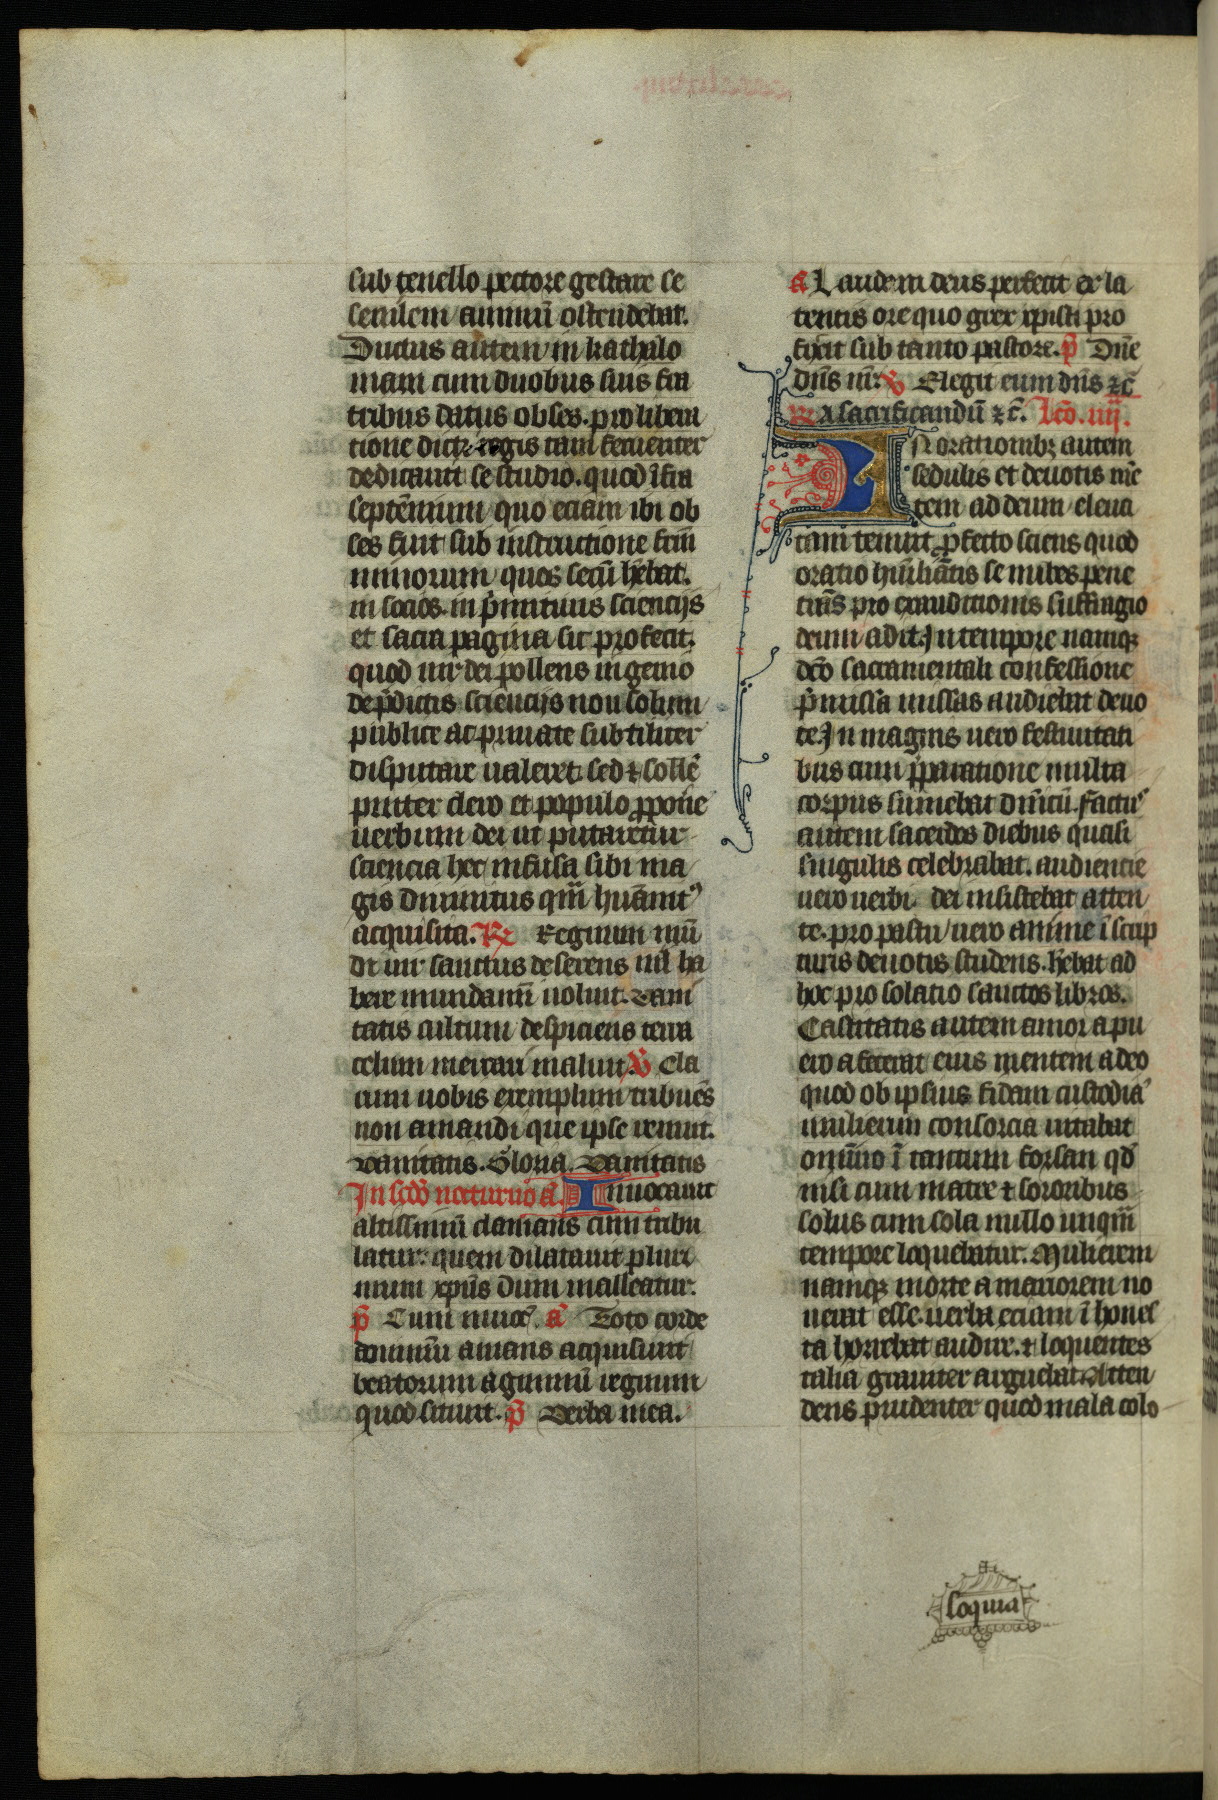 sub tenello pectore gestare se
senilem animũ ostendebat.
Ductus autem in kathalo
niam cum duobus suis fra
tribus datus obses. pro libera
tione dicti regis tam feruenter
dedicauit se studio. quod ĩfra
septẽnium quo eciam ibi ob
ses fuit sub instructione frm̃
minorum quos secũ hẽbat.
in socios. in p̃mitiuis sciencijs
et sacra pagina sic profecit.
quod uir dei pollens ingenio
de p̃dictis sciencijs non solum
publice ac priuate subtiliter
disputare ualeret. sed ⁊ sollẽ
pniter clero et populo ꝓpone
uerbum dei ut putaretur
sciencia hec infusa sibi ma
gis diuinitus qm̃ huãnit᷒
acquisita. ℟ Regnum mũ
di uir sanctus deserens nil ha
bere mundanũ uoluit. Vani
tatis cultum despiciens terra
celum mercari maluit. ℣ Cla
rum nobis exemplum tribuẽs
non amandi que ipse renuit.
Vanitatis. Gloria. Vanitatis
In scd̃o nocturno a̶ Inuocauit
altissimũ clamans cum tribu
latur. quem dilatauit pluri
mum xp̃us dum malleatur.
p̃ Cum inuoc̃. a̶ Toto corde
dominũ amans acquisiuit
beatorum agminũ regnum
quod sitiuit. p̃ Verba mea.
a̶ Laudem deus perfecit ex la
tentis ore quo grex xpisti pro
ficit sub tanto pastore. p̃ Dñe
dñs nr̃. ℣ Elegit eum dñs ⁊c̃
℟ A sacrificandũ ⁊c̃. Lcõ. iiij.
IN orationibꝫ autem
sedulis et deuotis mẽ
tem ad deum eleua
tam tenuit. ꝓfecto sciens quod
oratio huĩliãtis se nubes pene
trãs pro exauditionis suffragio
deum adit. In tempore namqꝫ
dc̃o sacramentali confessione
p̃missa missas audiebat deuo
te. In magnis uero festiuitati
bus cum p̃paratione multa
corpus sumebat dñicũ. Factus
autem sacerdos diebus quasi
singulis celebrabat. audiencie
uero uerbi dei insistebat atten
te. pro pastu uero anime ĩ scrip
turis deuotis studens. hẽbat ad
hoc pro solatio sanctos libros.
Castitatis autem amor a pu
ero afecerat eius mentem adeo
quod ob ipsius fidam custodiã
mulierum consorcia uitabat
omñino ĩ tantum forsan qd̃
nisi cum matre ⁊ sororibus
solus cum sola nullo unqm̃
tempore loquebatur. Mulierem
namqꝫ morte amariorem no
uerat esse. uerba eciam ĩ hones
ta horrebat audire. ⁊ loquentes
talia grauiter arguebat. Atten
dens prudenter quod mala colo
loquia